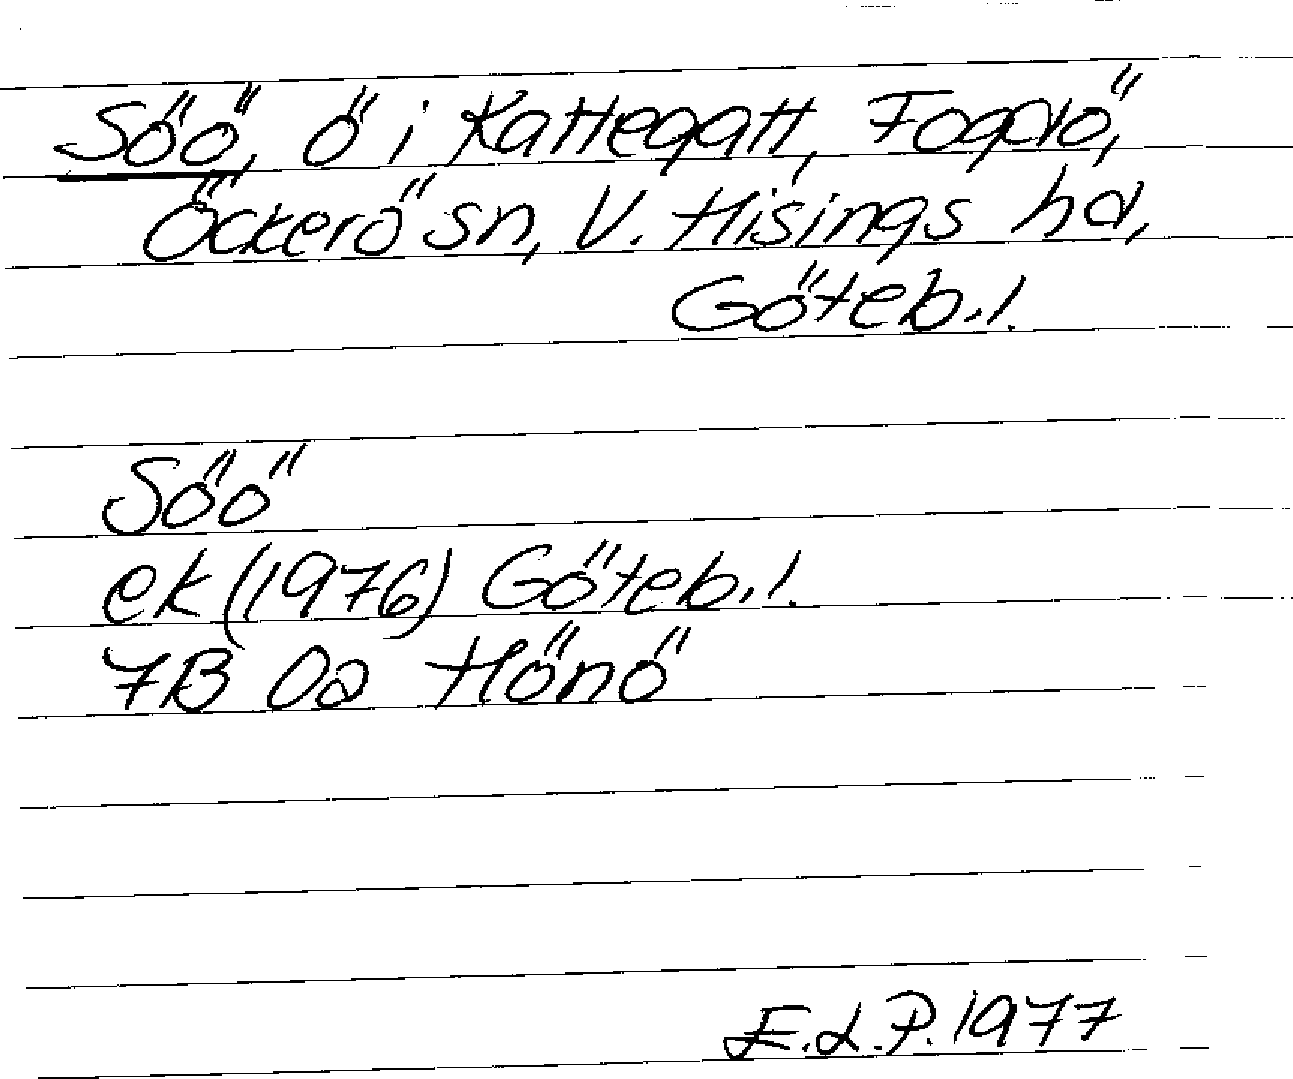 Söö, ö i Kattegatt, Fogdö,
Öckerö sn, V. Hisings hd,
Göteb. l.
Söö
ek (1976) Göteb. l.
7B 0a Hönö
E.L.P. 1977